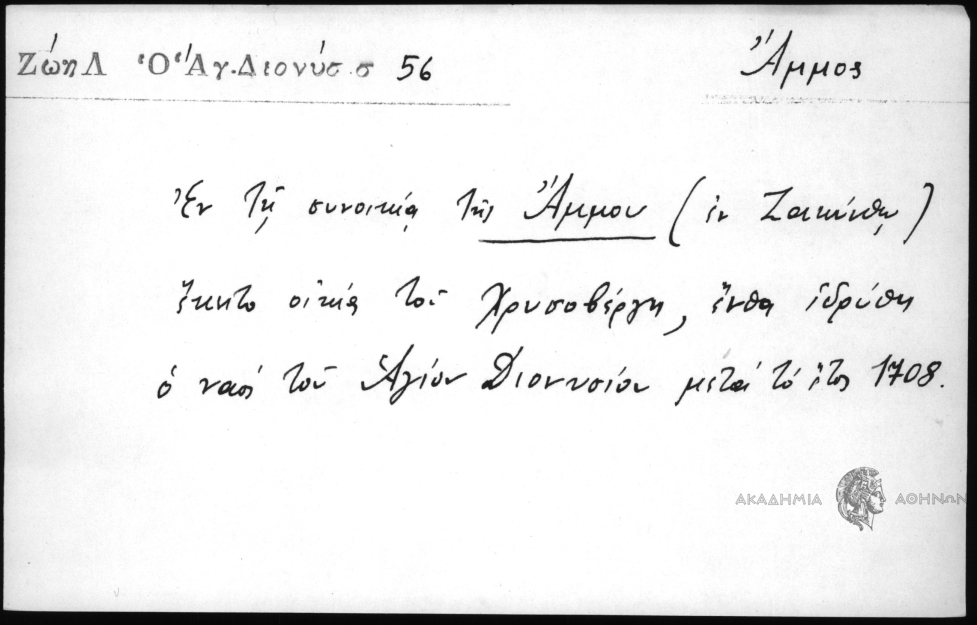 Ζώη Λ Ὁ Ἅγ. Διονύσ σ 56
Ἄμμος
Ἐν τῇ συνοικίᾳ τῆς Ἄμμου (ἐν Ζακύνθῳ)
ἔκειτο οἰκία τοῦ Χρυσοβέργη, ἔνθα ἱδρύθη
ὁ ναὸς τοῦ Ἁγίου Διονυσίου μετὰ τὸ ἔτος 1708.
ΑΚΑΔΗΜΙΑ ΑΘΗΝΩΝ